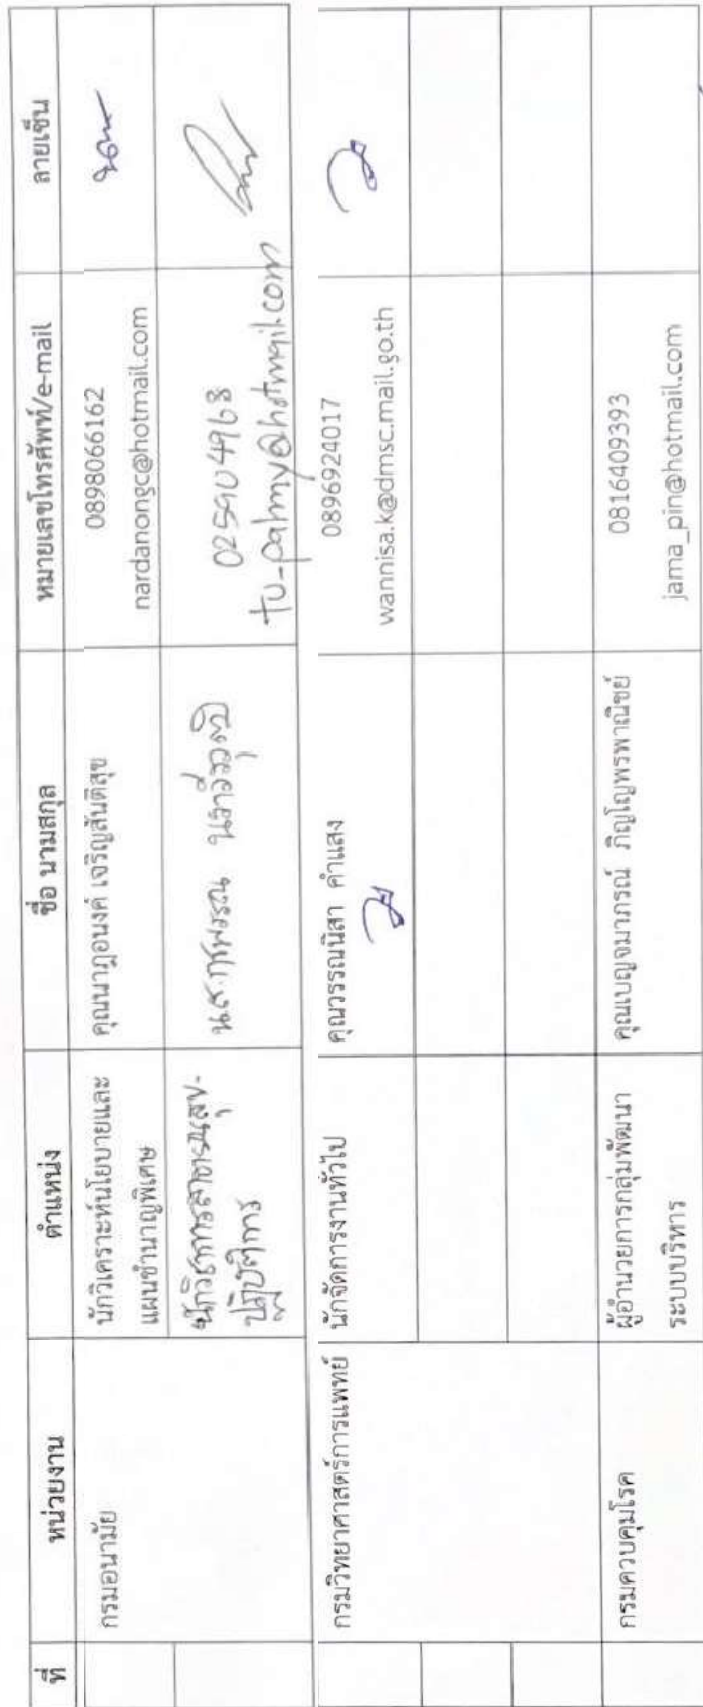 ที่ หน่วยงาน ตำแหน่ง ชื่อ นามสกุล หมายเลขโทรศัพท์/e-mail ลายเซ็น
กรมอนามัย นักวิเคราะห์นโยบายและ คุณนาฏอนงค์ เจริญสันติสุข 0898066162
แผนชำนาญพิเศษ nardanongc@hotmail.com
นักวิชาการสาธารณสุข- น.ส. 025904968
ปฏิบัติการ tu-palmy@hotmail.com
กรมวิทยาศาสตร์การแพทย์ นักจัดการงานทั่วไป คุณวรรณนิสา คำแสง 0896924017
wannisa.k@dmsc.mail.go.th
กรมควบคุมโรค ผู้อำนวยการกลุ่มพัฒนา คุณเบญจมาภรณ์ ภิญโญพรพาณิชย์ 0816409393
ระบบบริหาร jama_pin@hotmail.com